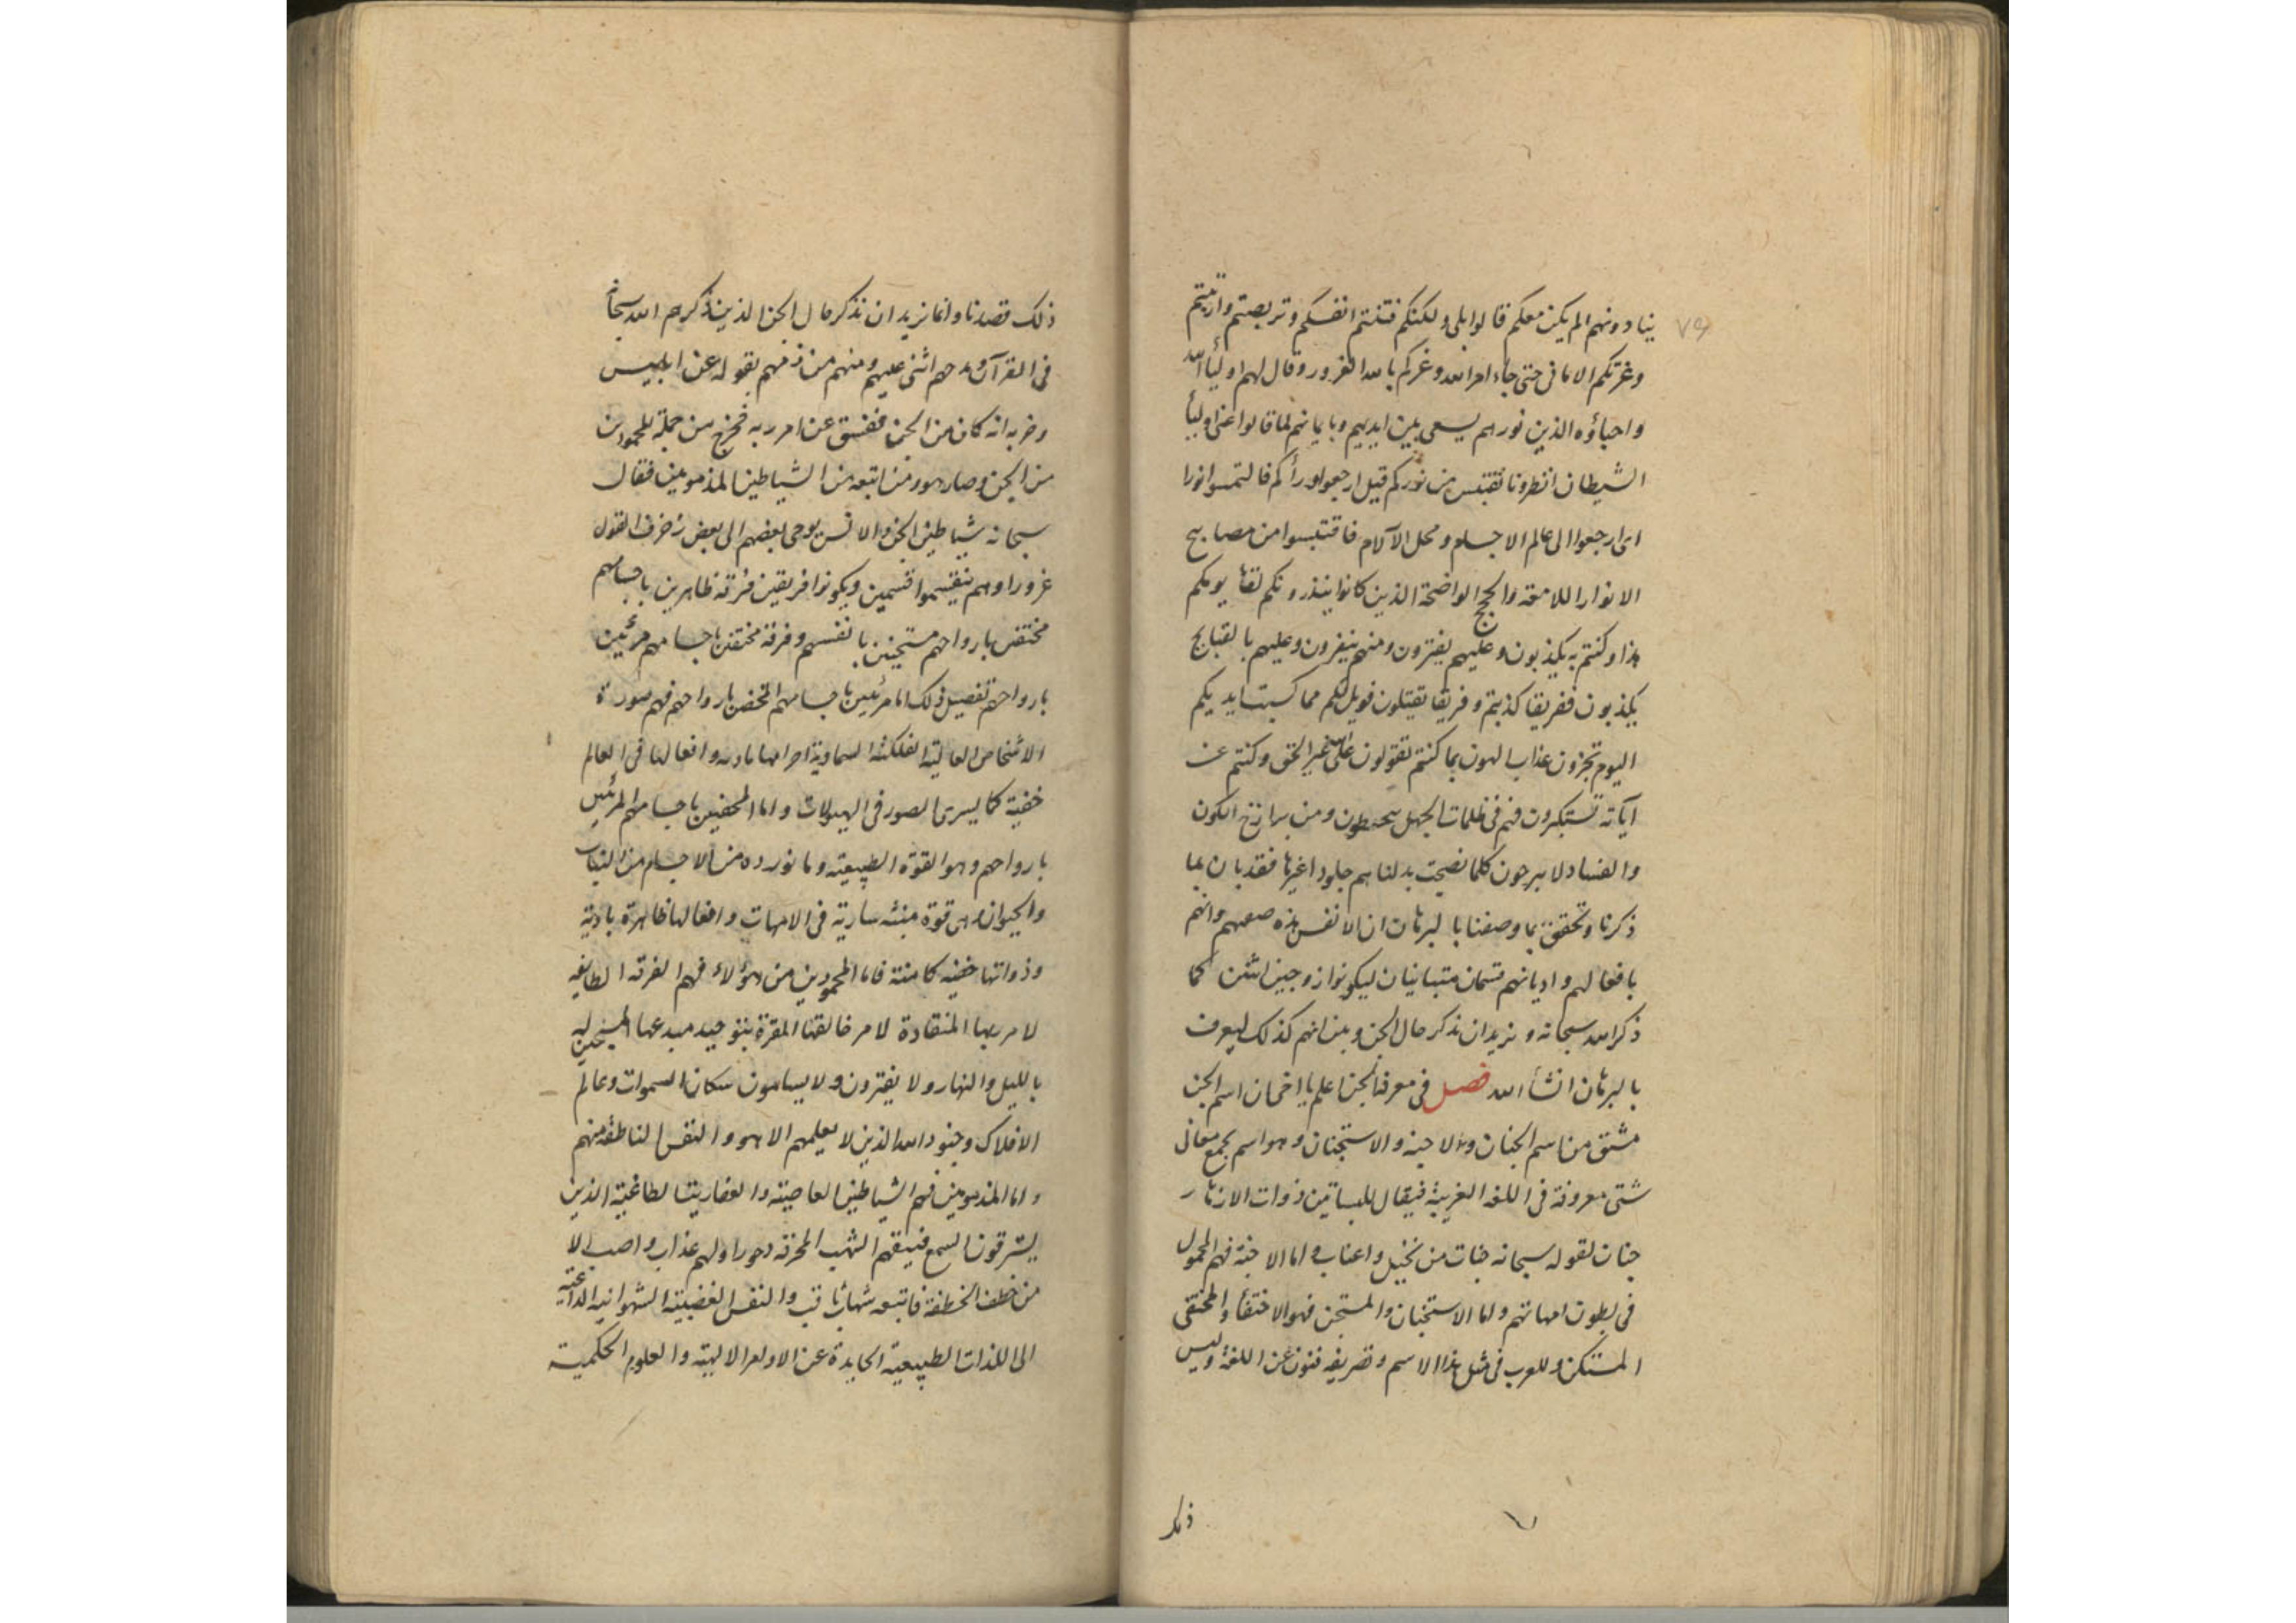 ينادونهم الم يكن معكم قالوا بلى ولكنكم فتنتم انفسكم وتربصتم وارتبتم
٧٩
وغرتكم الامانى حتى جاء امر الله وغركم بالله الغرور وقال لهم اولياء الله
واحباؤه الذين نورهم يسعى بين ايديهم وبايمانهم لما قالوا عنى اوليأ
الشيطان انظرونا نقتبس من نوركم قيل ارجعوا ورأكم فالتمسوا نورا
اى ارجعوا الى عالم الاجسام ومحل الآلام فاقتبسوا من مصابيح
الانوار اللامعة والحجج الواضحة الذين كانوا ينذرونكم لقأ يومكم
هذا وكنتم به تكذبون وعليهم يفترون ومنهم ينفرون وعليهم بالقبايح
يكذبون ففريقا كذبتم وفريقا تقتلون فويل لكم مما كسبت ايديكم
اليوم تجزون عذاب الهون بما كنتم تقولون على الله غير الحق وكنتم عن
آياته تستكبرون فهم فى ظلمات الجهل يتخبطون ومن برازخ الكون
والفساد لا يبرحون كلما نضجت بدلناهم جلودا غيرها فقد بان بما
ذكرنا وتحقق بما وصفنا بالبرهان ان الانفس هذه صفتهم وانهم
بافعالهم واديانهم قسمان متباينان ليكونوا زوجين اثنين كما
ذكر الله سبحانه ونريد ان نذكر حال الجن ونبين انهم كذلك ليعرف
بالبرهان انشأ الله فصل فى معرفة الجن اعلم يا اخى ان اسم الجن
مشتق من اسم الجنان والاجنة والاستجنان وهو اسم يجمع معانى
شتى معروفة فى اللغة العربية فيقال للبساتين ذوات الازهار
جنات لقوله سبحانه جنات من نخيل واعناب واما الاجنة فهم المحمول
فى بطون امهاتهم واما الاستجنان والمستجن فهو الاختفأ والمختفى
المستكن وللعرب فى مثل هذا الاسم وتصريفه فنون عن اللغة وليس
ذلك
ذلك قصدنا وانما نريد ان نذكر حال الجن الذين ذكرهم الله سبحانه
فى القرآن ومدحهم اثنى عليهم ومنهم من ذمهم بقوله عن ابليس
وحزبه انه كان من الجن ففسق عن امر ربه فخرج من جملة المحمودين
من الجن وصار هو ومن اتبعه من الشياطين المذمومين فقال
سبحانه شياطين الجن والانس يوحى بعضهم الى بعض زخرف القول
غرورا وهم ينقسموا قسمين ويكونوا فريقين فرقة ظاهرين باجسامهم
مختفين بارواحهم مستجنين بانفسهم وفرقة مختفين باجسامهم مرئيين
بارواحهم تفصيل ذلك اما مرئيين باجسامهم المختفين بارواحهم فهم صورة
الاشخاص العالية الفلكية السماوية اجرامها بادية وافعالها فى العالم
خفية كما يسرى الصور فى الهيولات واما المخفيين باجسامهم المرئيين
بارواحهم وهو القوة الطبيعية وما نورده من الاجسام من النبات
والحيوان وهى قوة منبثه سارية فى الامهات وافعالها ظاهرة بادية
وذواتها خفيه كامنة فاما المحمودين من هؤلاء فهم الفرقة الطايعه
لامر ربها المنقادة لامر خالقها المقرة بتوحيد مبدعها المسبحين له
بالليل والنهار ولا يفترون ولا يسامون سكان السموات وعالم
الافلاك وجنود الله الذين لا يعلمهم الا هو والنفس الناطقة منهم
واما المذمومين فهم الشياطين العاصية والعفاريت الطاغية الذين
يسترقون السمع فتسبقهم الشهب المحرقة دحورا ولهم عذاب واصب الا
من خطف الخطفة فاتبعه شهاب ثاقب والنفس الغضبية الشهوانية الداعية
الى اللذات الطبيعية الحايدة عن الاوامر الالهية والعلوم الحكمية